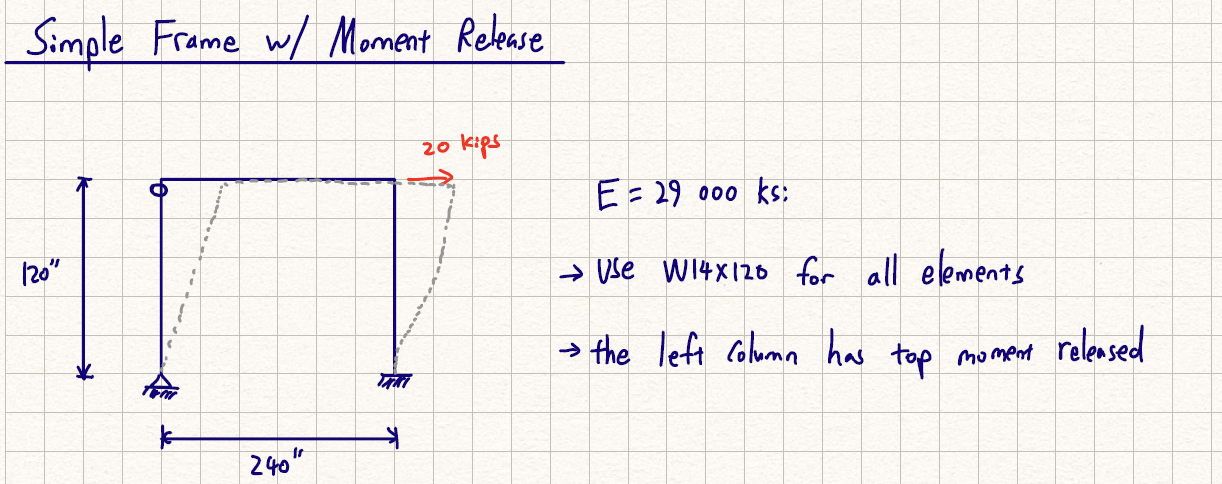 Simple Frame w/ Moment Release
20 kips
120"
240"
E = 29 000 ksi
→ Use W14x120 for all elements
→ the left column has top moment released